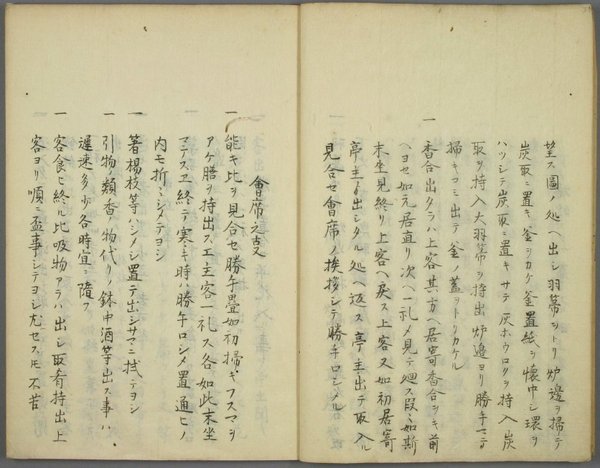 望ス圖ノ処ヘ出シ羽箒ヲトリ炉邊ヲ掃テ
炭取ニ置キ釜ヲカケ釜置紙ヲ懐中シ環ヲ
ハツシテ炭取ニ置キサテ灰ホウロクヲ持入炭
取ヲ持入大羽箒ヲ持出炉邊ヨリ勝手マテ
掃キコミ出テ釜ノ蓋ヲトリカケル
一
香合出タラハ上客其方ヘ居寄香合ヲキ前
ヘヨセ如元居直リ次ヘ一礼メ見テ廻ス段々如斯
末坐見終リ上客ヘ戻ス上客又如初居寄
亭主ヨリ出シタル処ヘ返ス亭主出テ取入ル
見合セ會席ノ挨拶シテ勝手口シメル
會席之支
一
能キ比ヲ見合セ勝手畳如初掃キフスマヲ
アケ膳ヲ持出ス主客一礼ス各如此末坐
マテスヱ終テ寒キ時ハ勝手口シメ置通ヒノ
内モ折々シメテヨシ
一
箸楊枝等ハシメシ置テ出シサマニ拭テヨシ
一
引物ノ類肴ノ物代リノ鉢中酒等出ス事ハ
遅速多少各時宜ニ隨フ
一
客食ヒ終ル比吸物アラハ出シ取肴持出上
客ヨリ順ニ盃事シテヨシ尤セスモ不苦